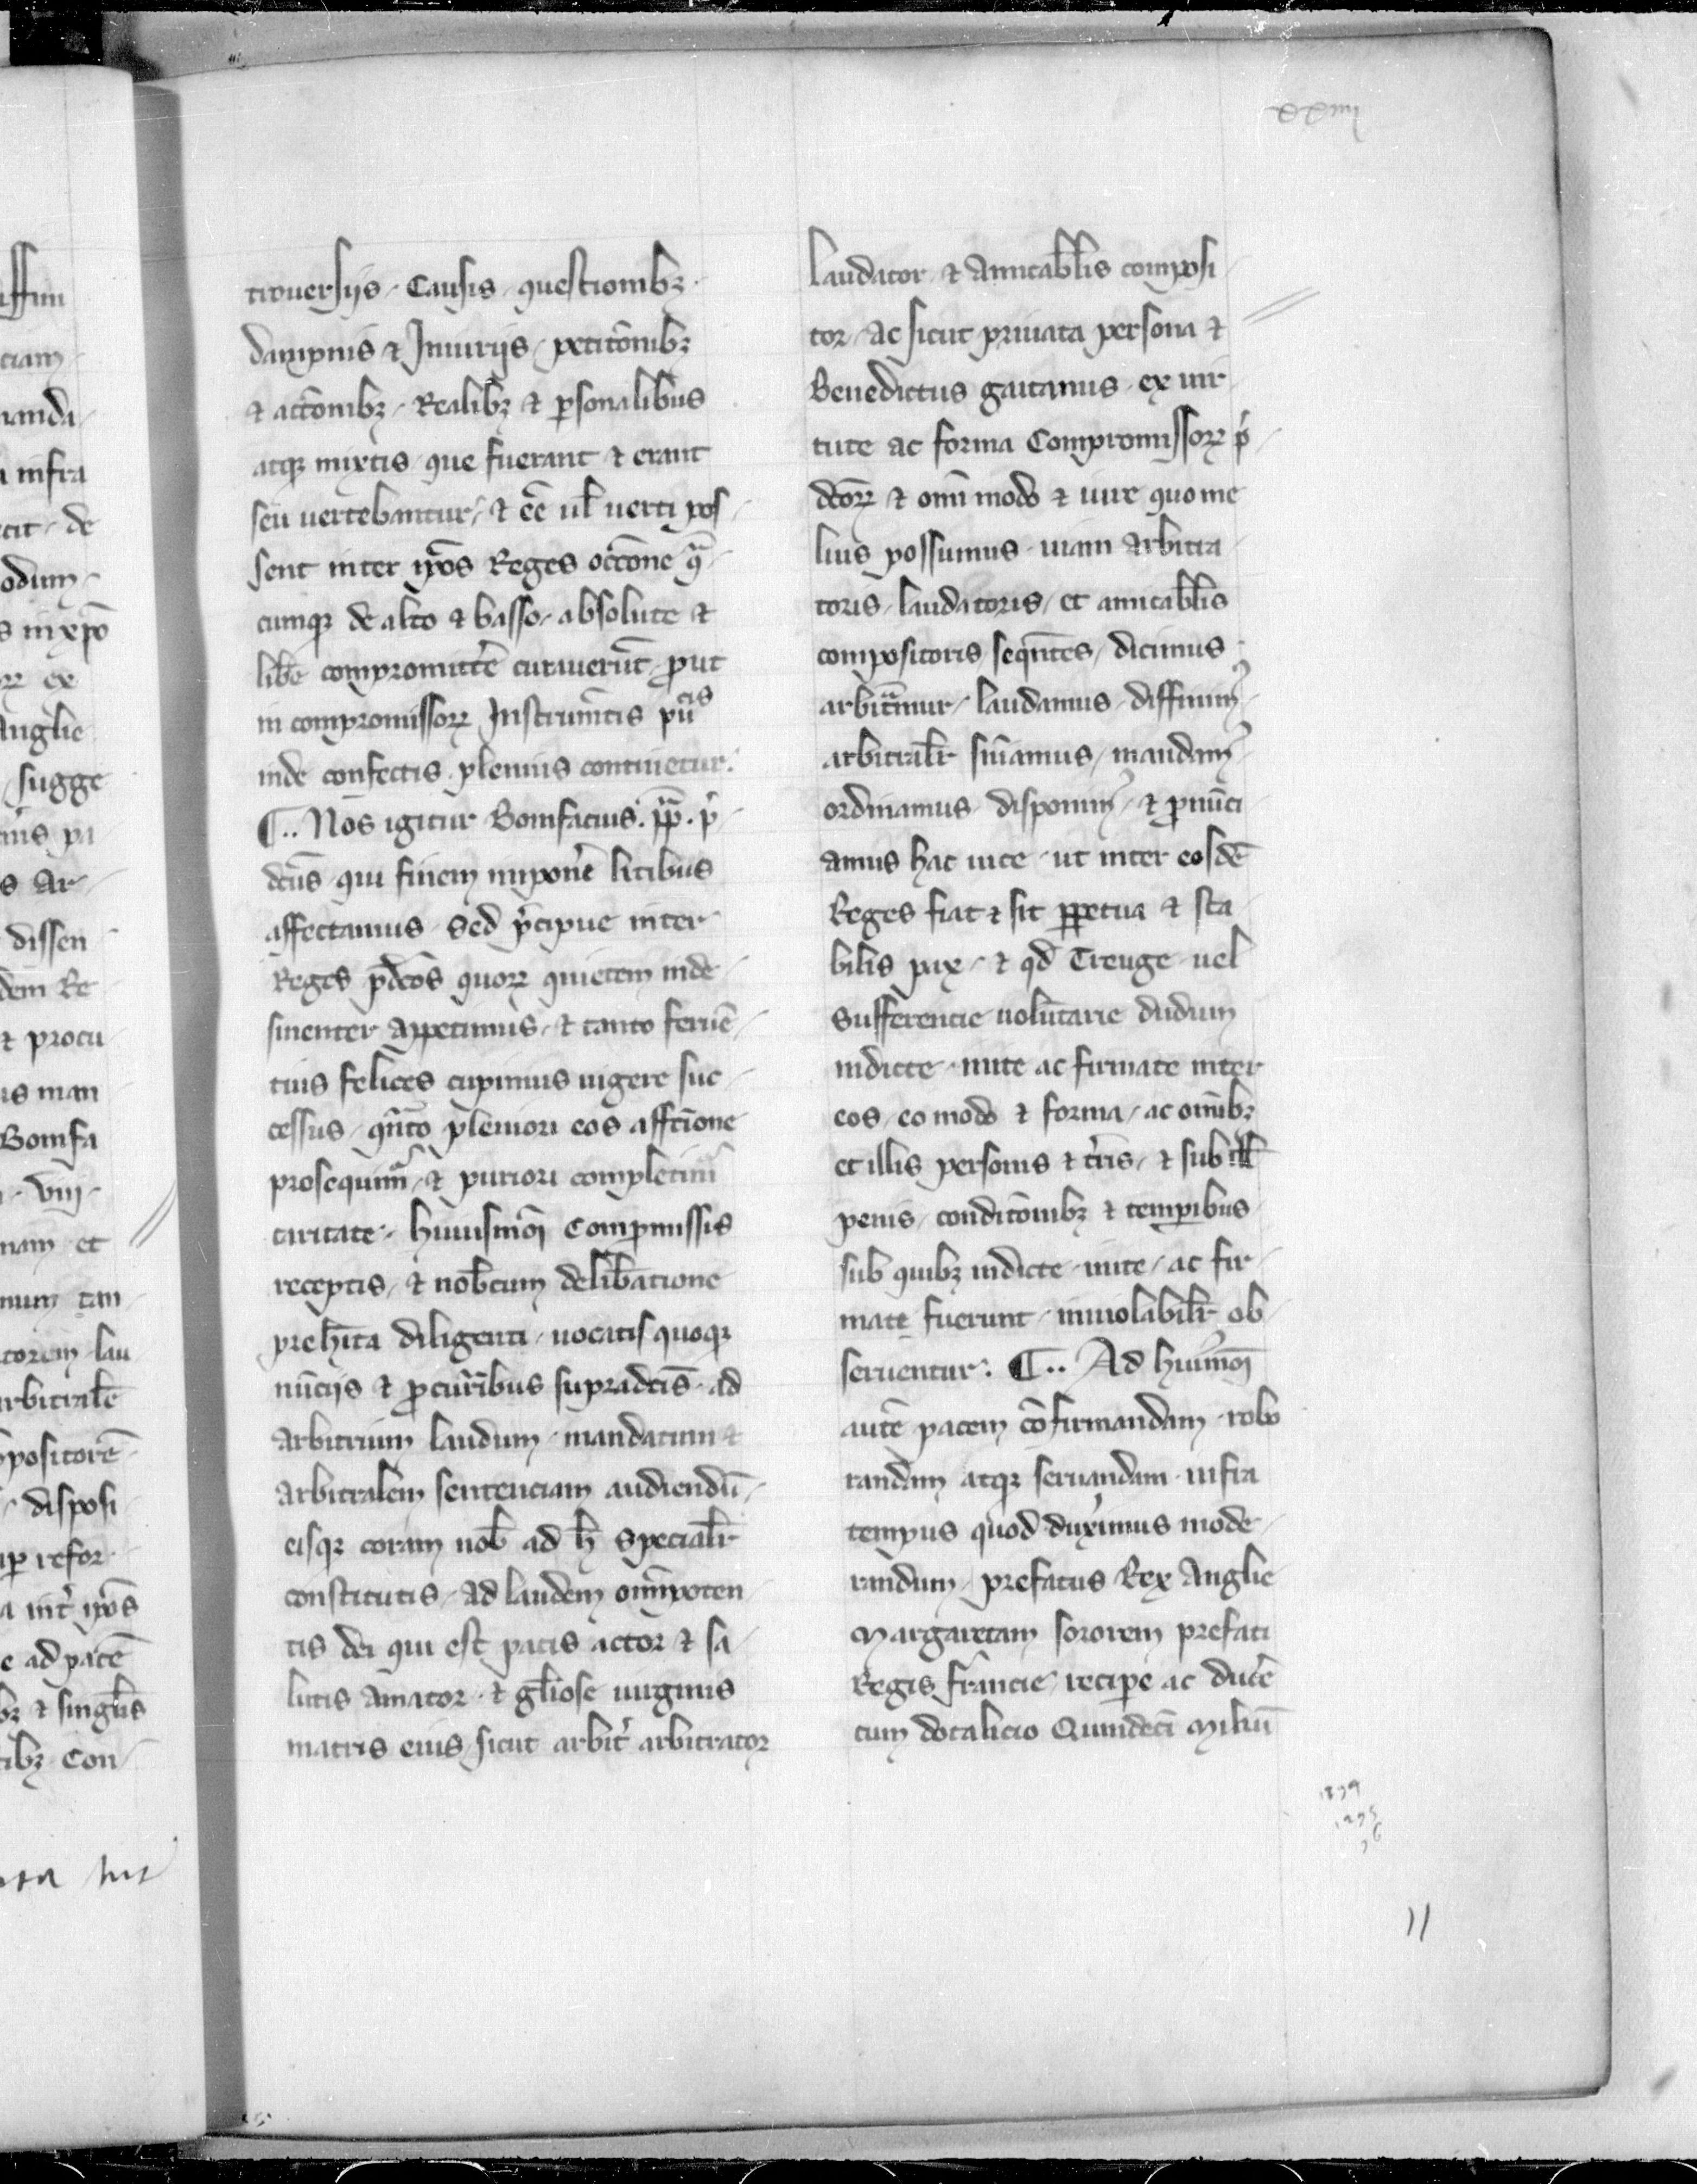 trouersijs / Causis / questionibꝫ
dampnis ⁊ Iniurijs / petic̄onibꝫ
⁊ acc̄onibꝫ / Realibꝫ ⁊ ꝑsonalibus
atqꝫ mixtis / que fuerant ⁊ erant
seu uertebantur / ⁊ ēē ul̄ uerti pos /
sent inter ip̄os Reges occōne qͣ /
cunqꝫ de alto ⁊ basso / absolute ⁊
libē compromittēe curauerūt / ꝓut
in compromissorꝝ Instrum̄tis pūcis
inde confectis plenius continetur.
¶ .. Nos igitur Bonifacius . pp̄ . p̄ /
dcūs qui finem imponēe litibus
affectamus / Sed p̄cipue inter
Reges p̄dcōs quorꝝ quietem inde /
sinenter appetimus / ⁊ tanto feruē /
tius felices cupimus uigere suc /
cessus / qn̄to pleniori eos affc̄ione
prosequimͬ / ⁊ puriori complectimͬ
caritate / Huiusmōi Compͦmissis
receptis / ⁊ nob̄cum delib̄atione
preh̄ita diligenti / uocatis quoqꝫ
nūcijs ⁊ ꝓcur̄ibus supradcīs / ad
Arbitrium laudum / mandatum ⁊
Arbitralem sentenciam audiendū /
eisqꝫ coram nob̄ ad h̄ Specialr̄
constitutis / Ad laudem om̄ipoten /
tis dei qui est pacis actor ⁊ sa /
lutis Amator / ⁊ gl̄iose uirginis
matris eius / sicut arbit̄ arbitrator
laudator ⁊ Amicabl̄is composi /
tor / Ac sicut priuata persona ⁊
Benedictus gaitanus / ex uir /
tute ac forma Compromissorꝝ p̄ /
dcōrꝝ ⁊ om̄i modo ⁊ iure quo me
lius possumus / uiam Arbitra /
toris / laudatoris / et amicabl̄is
compositoris / seqn̄tes / dicimus /
arbitͣmur / laudamus / diffinimꝰ /
arbitralr̄ sn̄iamus / mandamꝰ /
ordinamus / disponimꝰ / ⁊ ꝓnūci
amus hac uice / ut inter eosdē
Reges fiat ⁊ sit ꝑpetua ⁊ sta /
bilis pax / ⁊ qd̄ Treuge uel
Sufferencie uolūtarie dudum
indicte / inite ac firmate inter
eos / eo modo ⁊ forma / ac om̄ibꝫ
et illis personis ⁊ tr̄is / ⁊ sub ill̄
penis / condic̄onibꝫ ⁊ temꝑibus
sub quibꝫ indicte / inite / ac fir /
mate fuerunt / inuiolabilr̄ ob /
seruentur . ¶ .. Ad huiꝰmōi
autē pacem cōfirmandam / robo
randam atqꝫ seruandam / infra
tempus quod duximus mode /
randum / prefatus Rex Anglie
Margaretam sororem prefati
Regis francie / recipe ac ducēe
cum dotalicio Quindecī Miliū
11